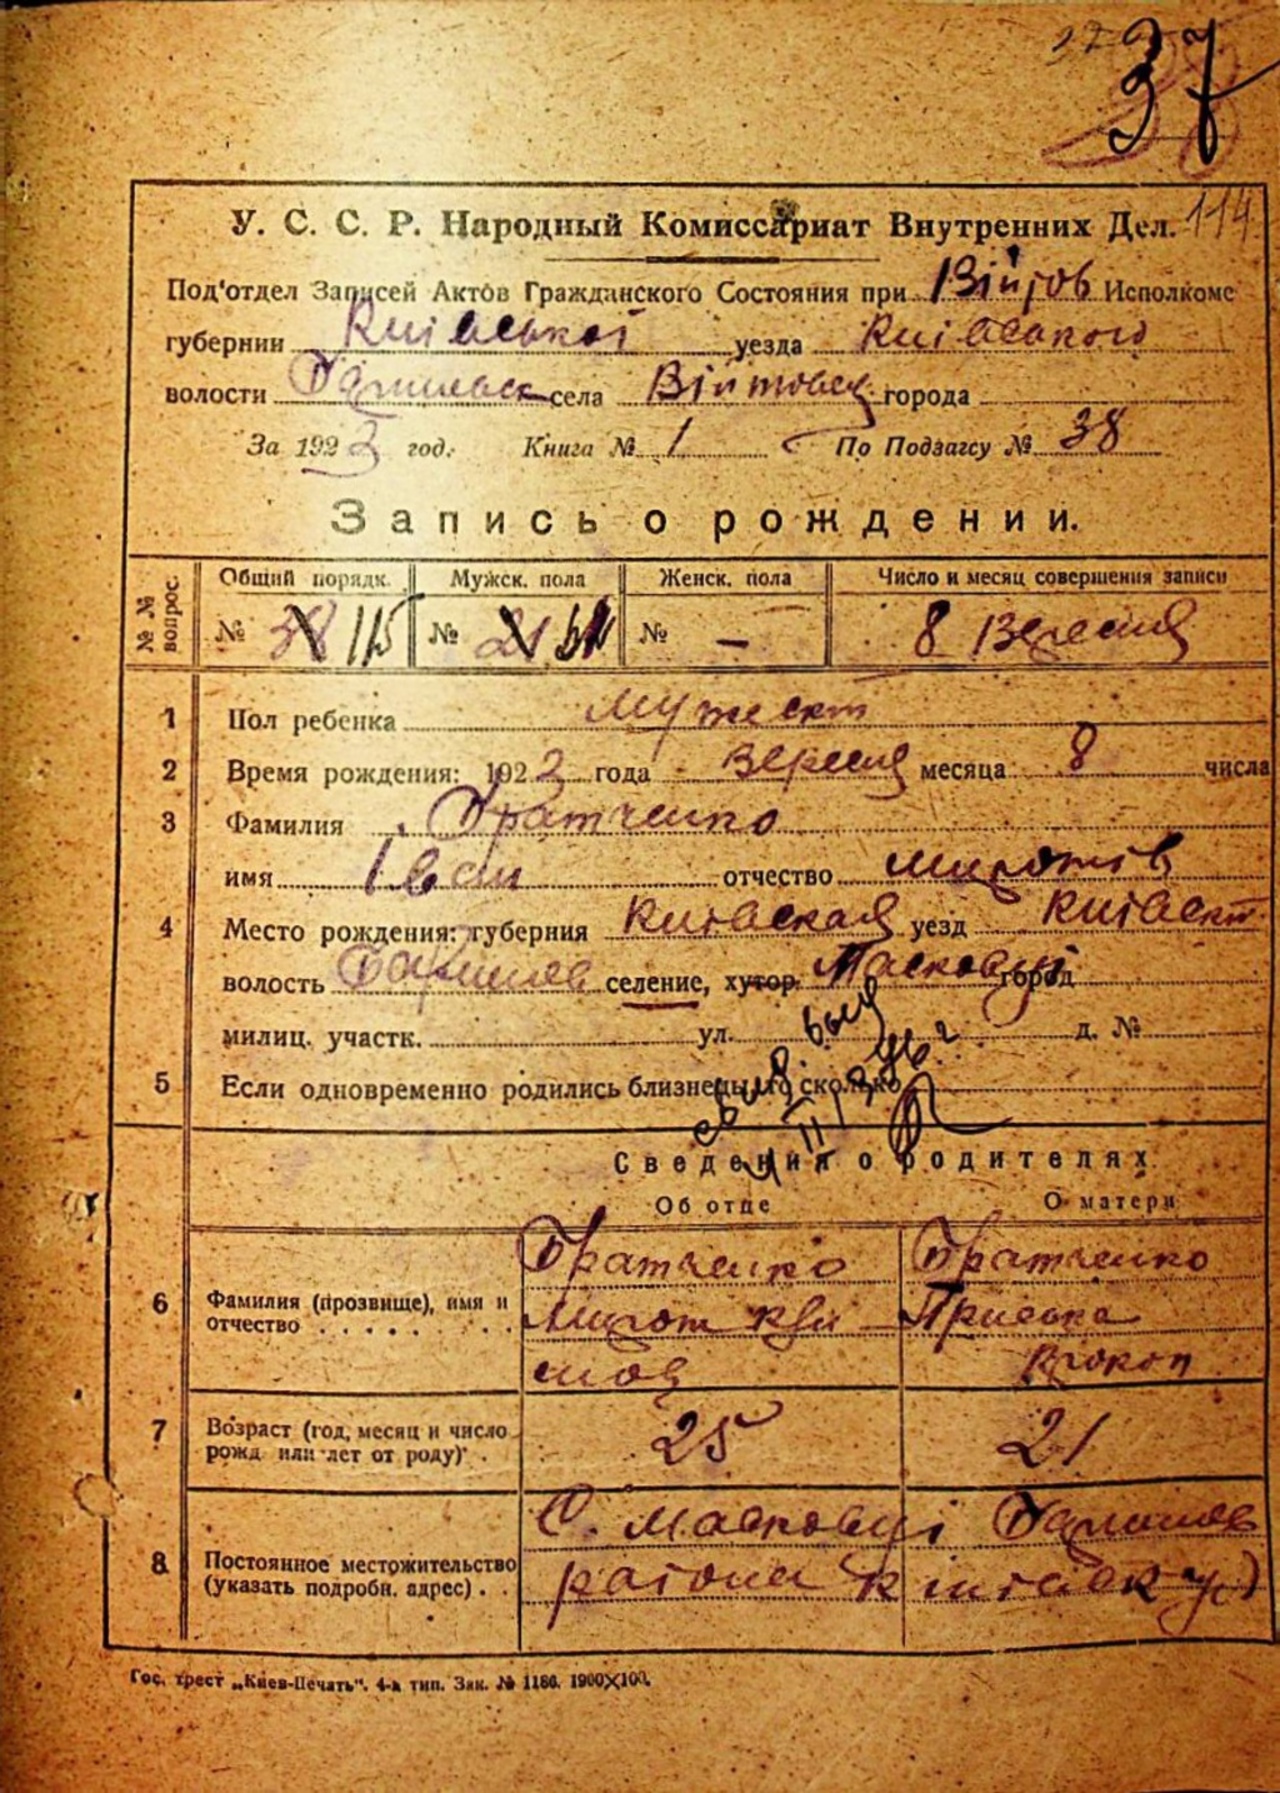 37
114
У. С. С. Р. Народный Комиссариат Внутренних Дел.
Под'отдел Записей Актов Гражданского Состояния при Війтов Исполкоме
губернии Київської уезда Київського
волости села Війтовец города
За 1923 год. Книга № 1 По Подзагсу № 38
Запись о рождении.
№ № вопрос. Общий порядк. Мужск. пола Женск. пола Число и месяц совершения записи
№ 38 115 № 21 № — 8 Вересня
1 Пол ребенка мужеск
2 Время рождения: 1923 года Вересня месяца 8 числа
3 Фамилия Братченко
имя Іван отчество
4 Место рождения: губерния Київская уезд Київск
волость селение, хутор Масковці город
милиц. участк. ул. д. №
5 Если одновременно родились близнецы, то сколько
Сведения о родителях
Об отце О матери
6 Фамилия (прозвище), имя и отчество Братченко Братченко
Приська
Прокоп
7 Возраст (год, месяц и число рожд. или лет от роду) 25 21
8 Постоянное местожительство (указать подробн. адрес) С. Масковці
района
Гос. трест „Киев-Печать“. 4-я тип. Зак. № 1186. 1900×100.